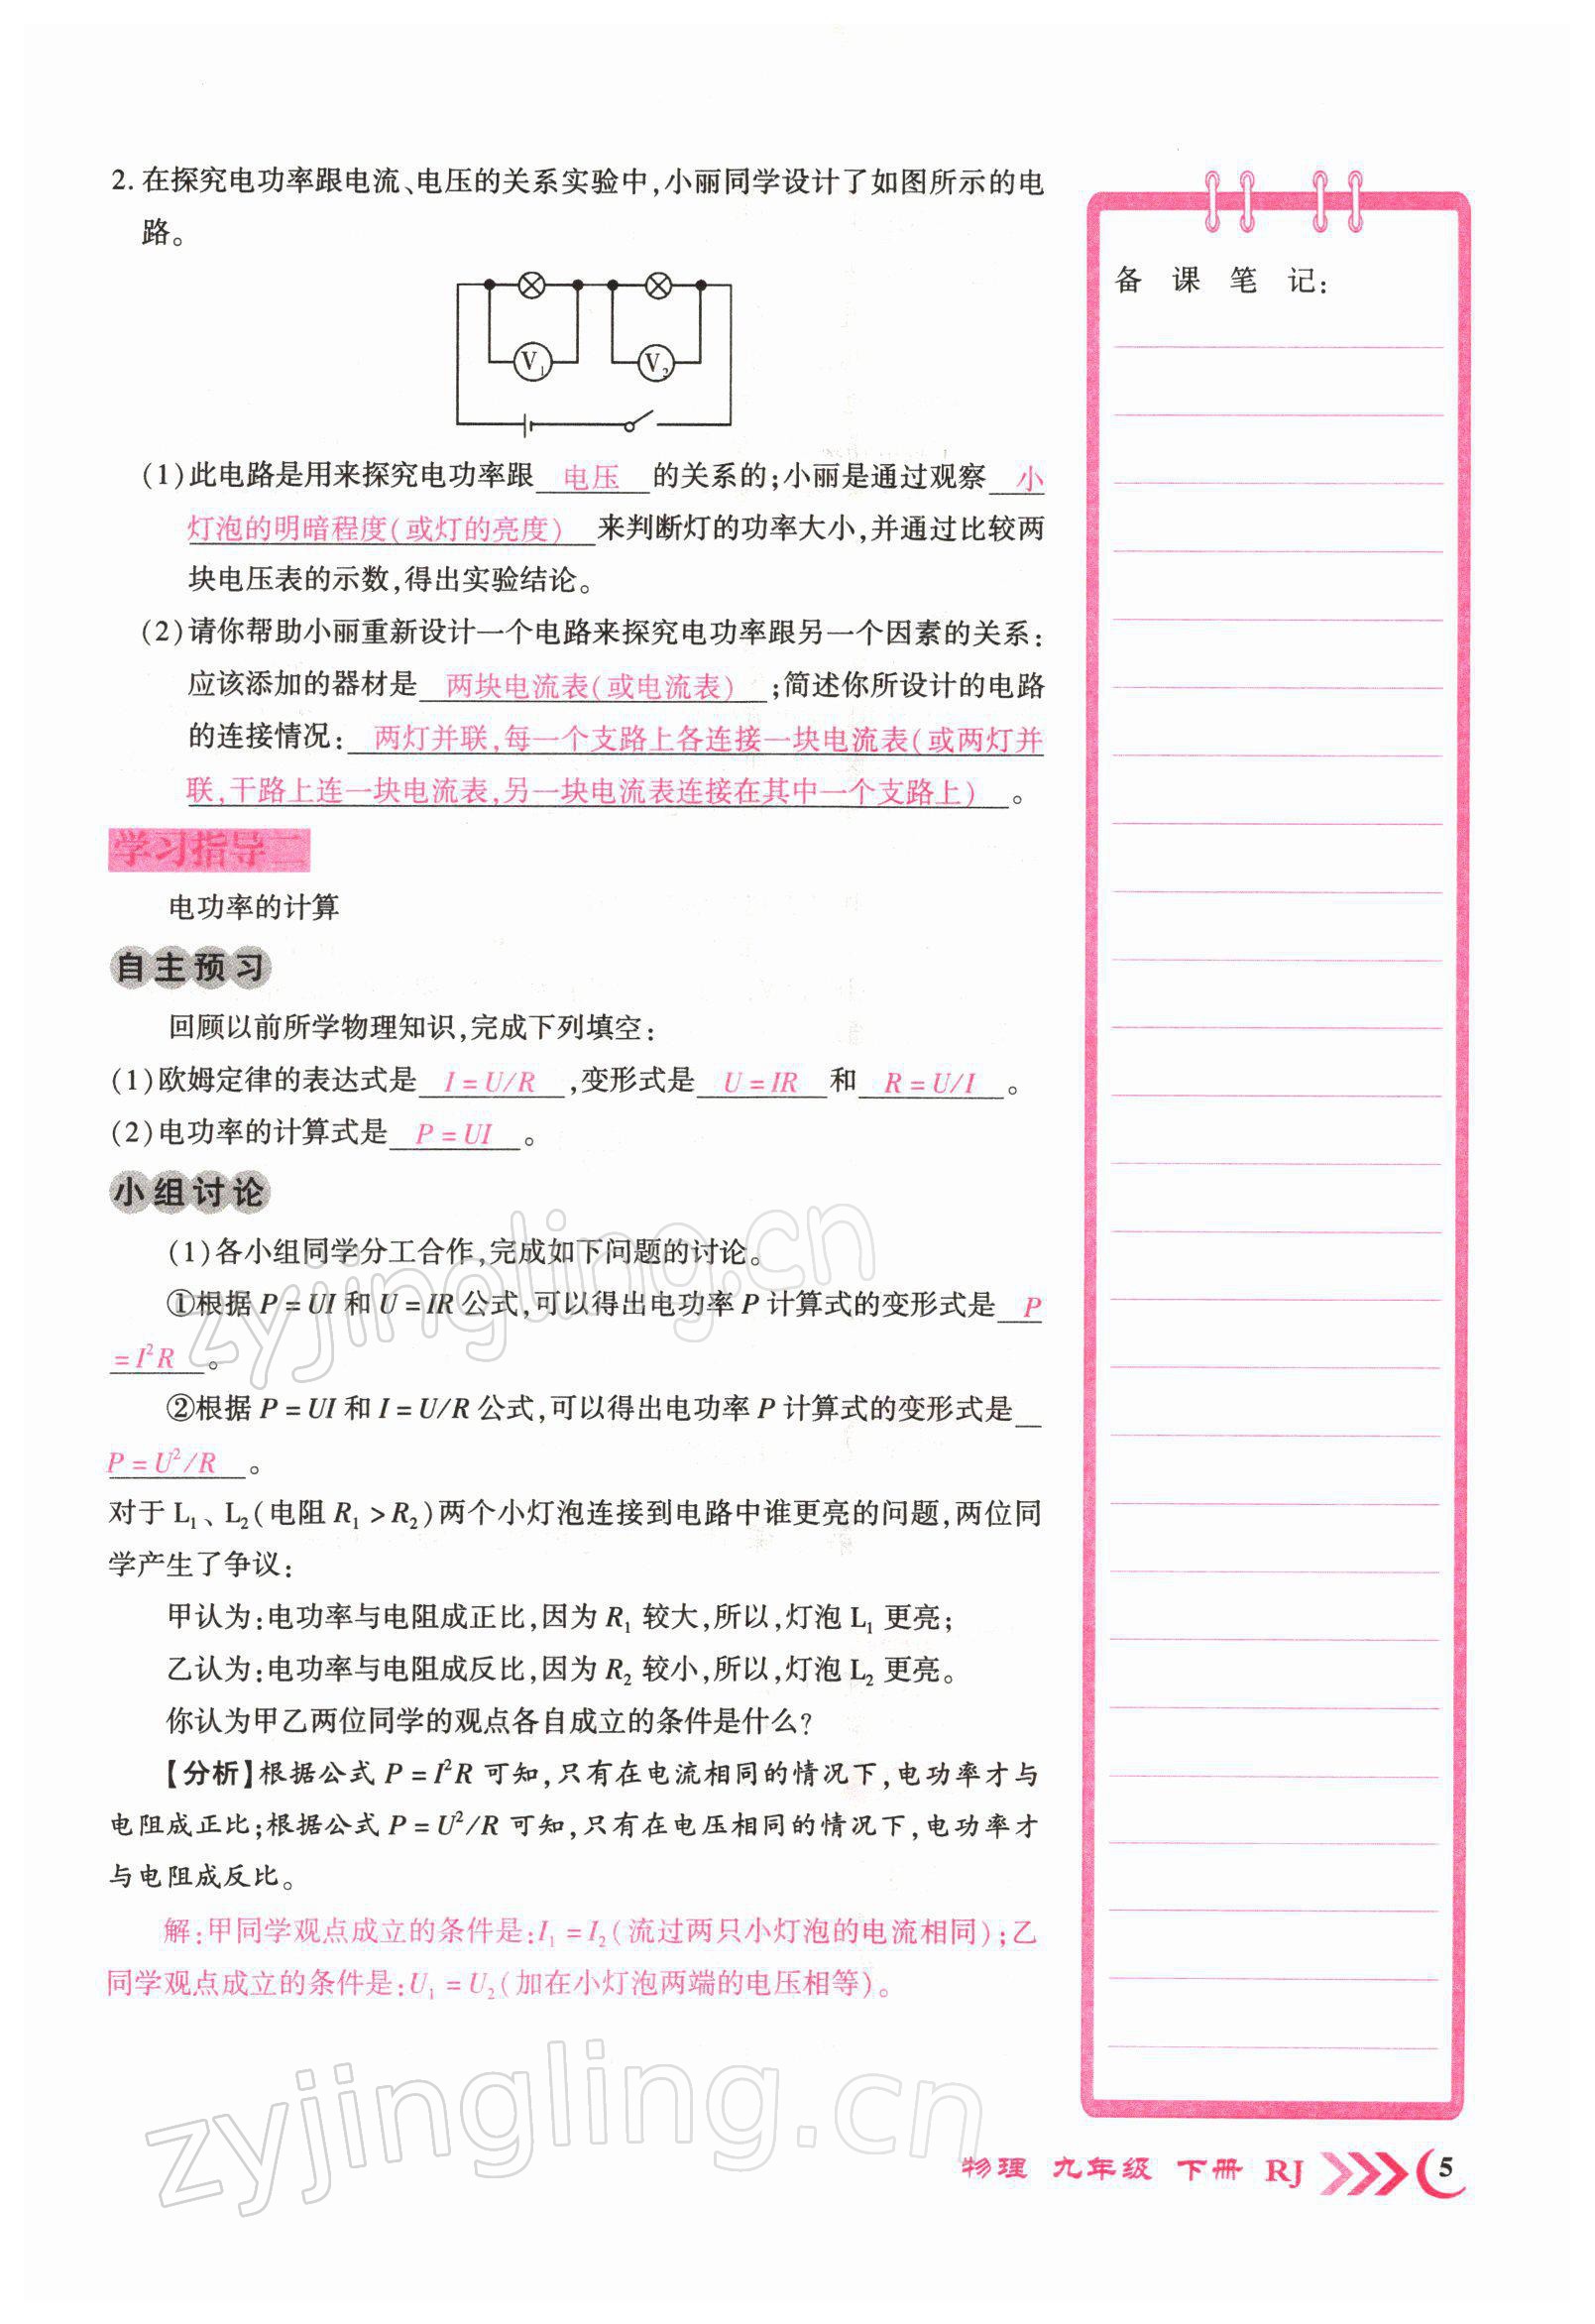 2. 在探究电功率跟电流、电压的关系实验中,小丽同学设计了如图所示的电
路。
备 课 笔 记:
V₁
V₂
(1)此电路是用来探究电功率跟 电压 的关系的;小丽是通过观察 小
灯泡的明暗程度(或灯的亮度) 来判断灯的功率大小,并通过比较两
块电压表的示数,得出实验结论。
(2)请你帮助小丽重新设计一个电路来探究电功率跟另一个因素的关系:
应该添加的器材是 两块电流表(或电流表) ;简述你所设计的电路
的连接情况: 两灯并联,每一个支路上各连接一块电流表(或两灯并
联,干路上连一块电流表,另一块电流表连接在其中一个支路上) 。
学习指导二
电功率的计算
自主预习
回顾以前所学物理知识,完成下列填空:
(1)欧姆定律的表达式是 I=U/R ,变形式是 U=IR 和 R=U/I 。
(2)电功率的计算式是 P=UI 。
小组讨论
(1)各小组同学分工合作,完成如下问题的讨论。
①根据 P=UI 和 U=IR 公式,可以得出电功率 P 计算式的变形式是 P
=I²R 。
②根据 P=UI 和 I=U/R 公式,可以得出电功率 P 计算式的变形式是
P=U²/R 。
对于 L₁、L₂(电阻 R₁>R₂)两个小灯泡连接到电路中谁更亮的问题,两位同
学产生了争议:
甲认为:电功率与电阻成正比,因为 R₁ 较大,所以,灯泡 L₁ 更亮;
乙认为:电功率与电阻成反比,因为 R₂ 较小,所以,灯泡 L₂ 更亮。
你认为甲乙两位同学的观点各自成立的条件是什么?
【分析】根据公式 P=I²R 可知,只有在电流相同的情况下,电功率才与
电阻成正比;根据公式 P=U²/R 可知,只有在电压相同的情况下,电功率才
与电阻成反比。
解:甲同学观点成立的条件是:I₁=I₂(流过两只小灯泡的电流相同);乙
同学观点成立的条件是:U₁=U₂(加在小灯泡两端的电压相等)。
zyjingling.cn
zyjingling.cn
物理 九年级 下册 RJ 5